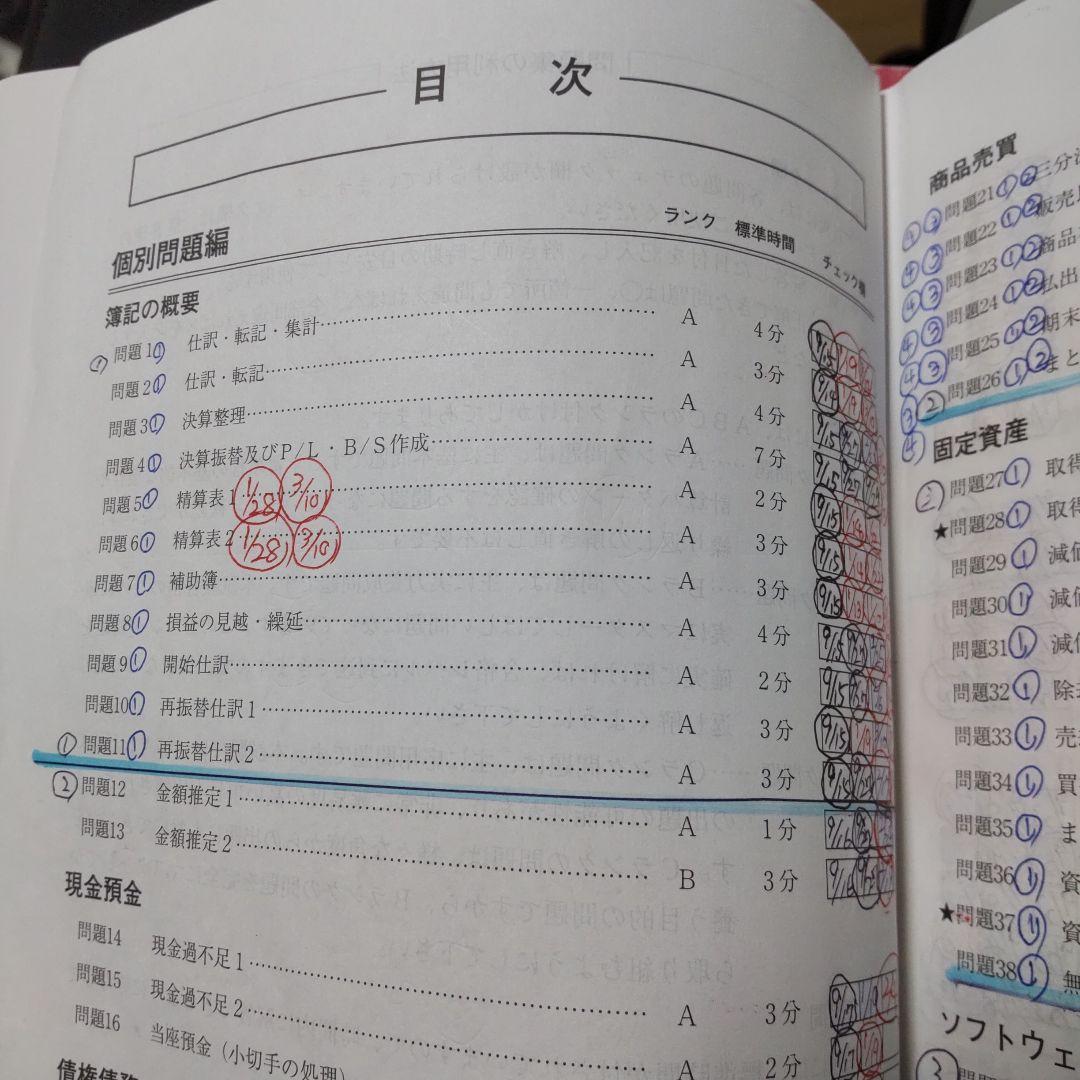 目 次
個別問題編 ランク 標準時間 チェック欄
簿記の概要
① 問題1① 仕訳・転記・集計 A 4分 9/15
問題2① 仕訳・転記 A 3分 9/14
問題3① 決算整理 A 4分 9/15
問題4① 決算振替及びP/L・B/S作成 A 7分 9/15
問題5① 精算表1 1/28 3/10 A 2分 9/15
問題6① 精算表2 1/28 3/10 A 3分 9/15
問題7① 補助簿 A 3分 9/15
問題8① 損益の見越・繰延 A 4分
問題9① 開始仕訳 A 2分 9/15
問題10① 再振替仕訳1 A 3分
① 問題11① 再振替仕訳2 A 3分 9/15
② 問題12 金額推定1 A 1分
問題13 金額推定2 B 3分
現金預金
問題14 現金過不足1 A 3分 9/17
問題15 現金過不足2 A 2分 9/17
問題16 当座預金(小切手の処理) A
債権債務
商品売買
④③ 問題21①② 三分
④③ 問題22①② 販売
④③ 問題23①② 商品
④③ 問題24①② 払出
④③ 問題25①② 期末
③② 問題26①② まと
④
固定資産
② 問題27① 取得
★問題28① 取得
問題29① 減価
問題30① 減価
問題31① 減価
問題32① 除
問題33① 売
問題34① 買
問題35① ま
問題36① 資
★問題37① 資
問題38① 無
ソフトウェ
③